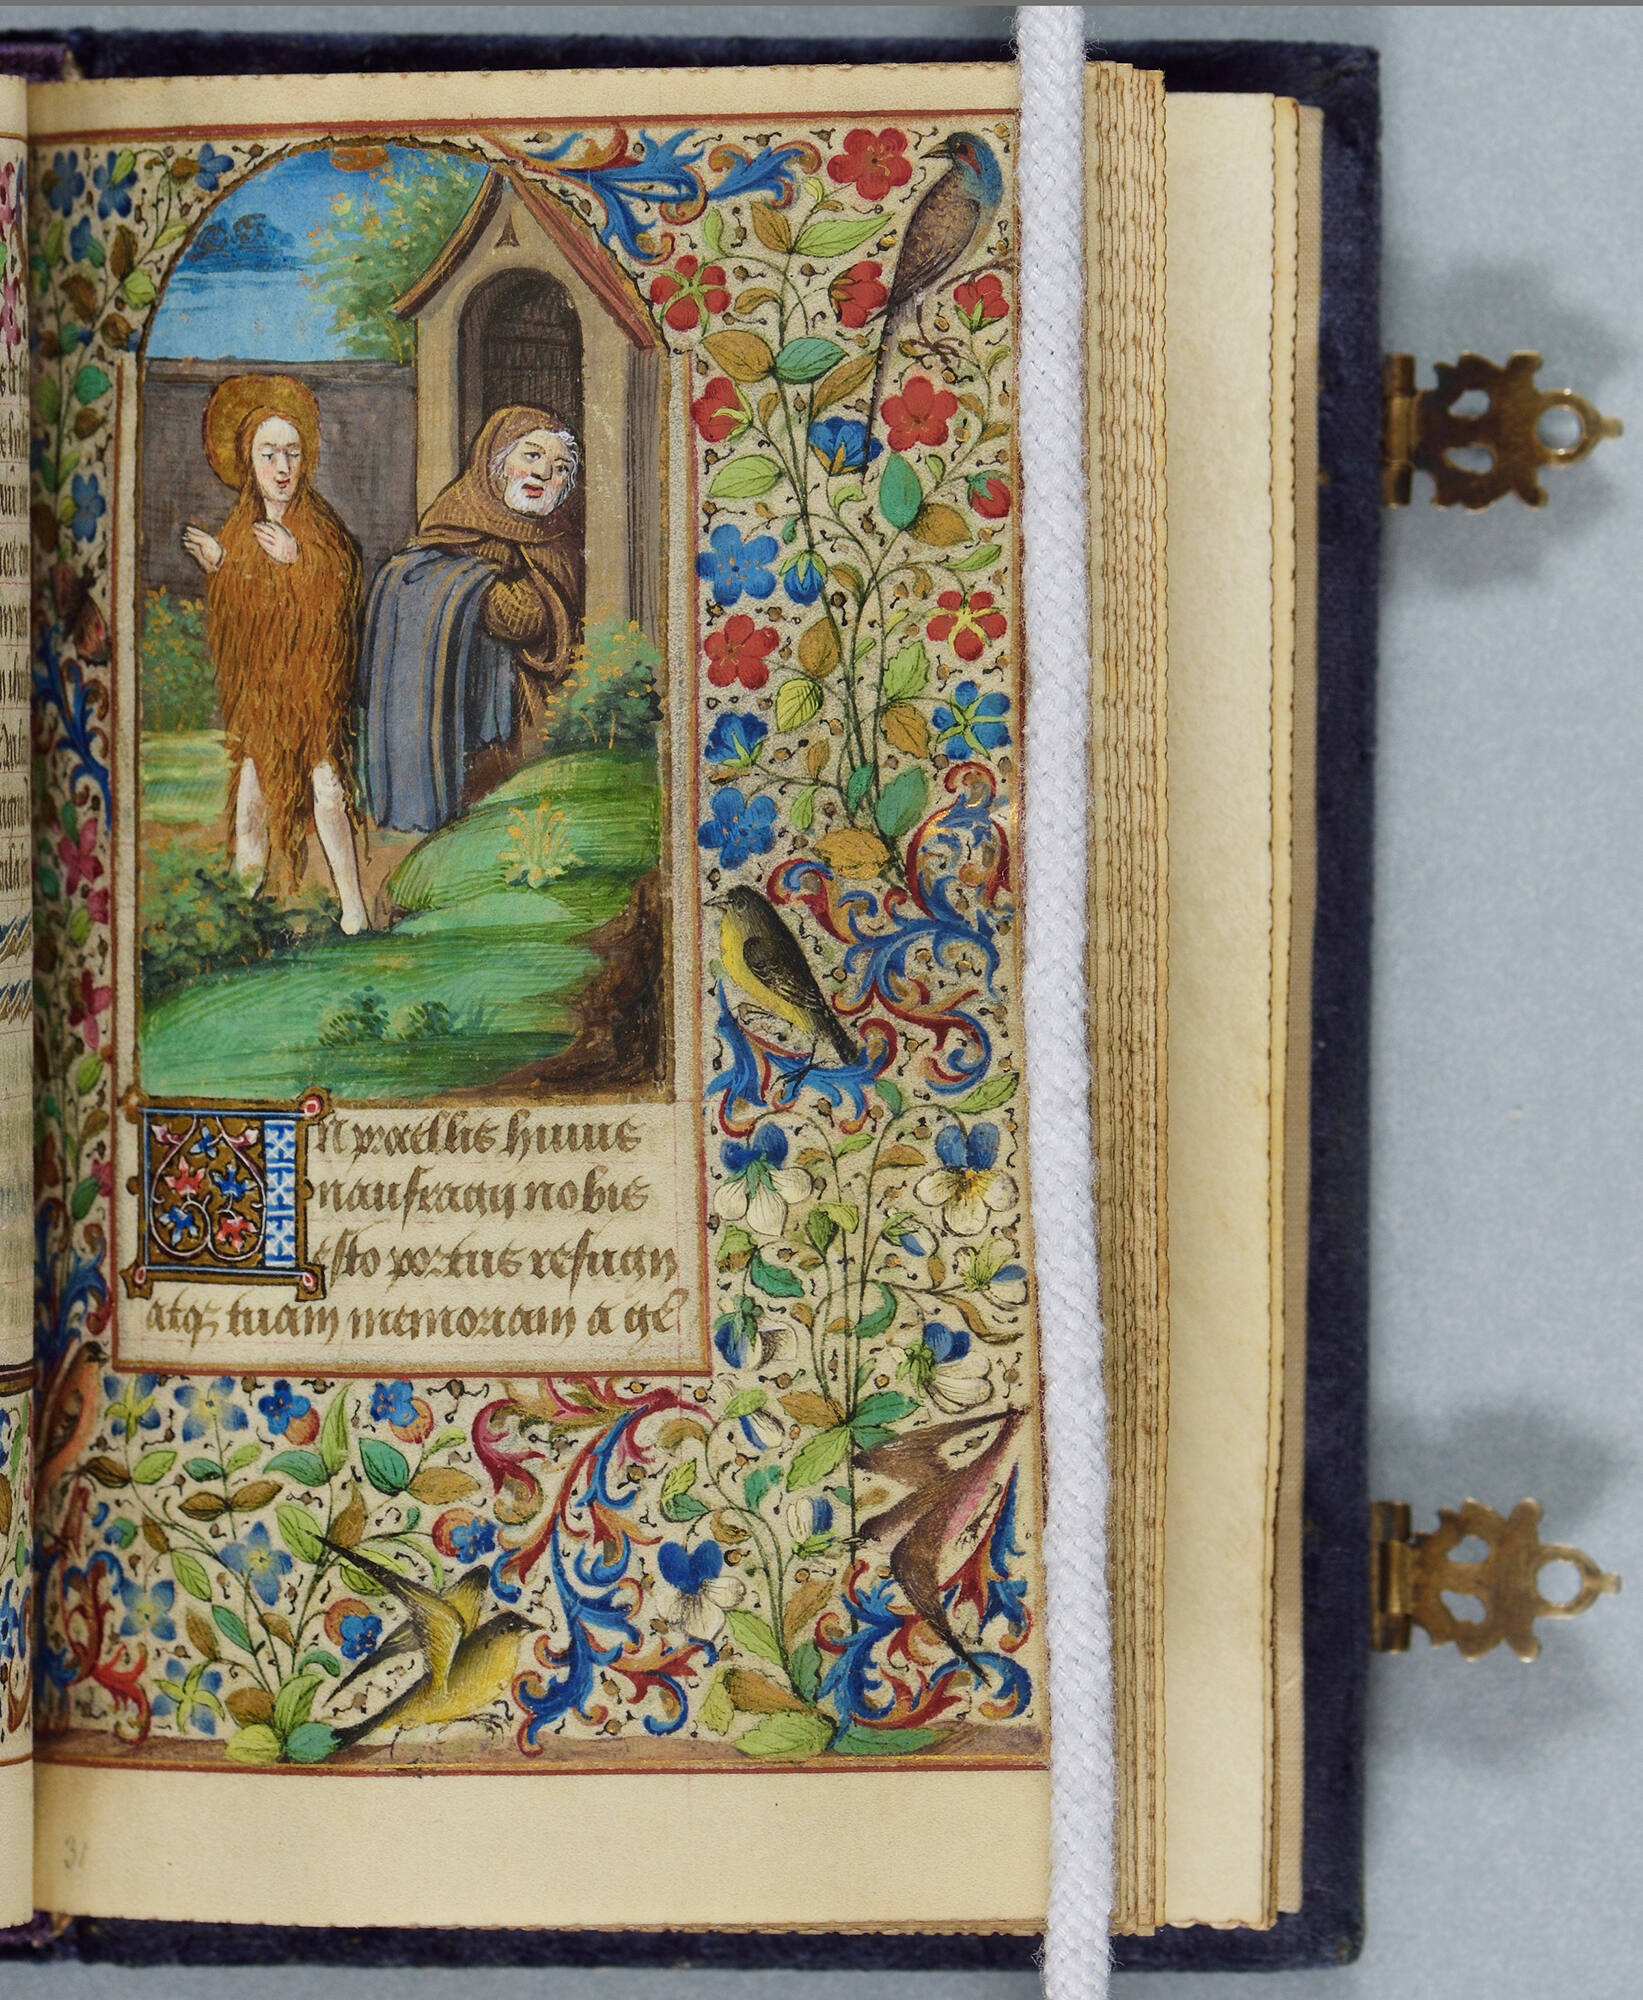 In procellis huius
naufragij nobis
esto portus refugij
atq; tuam memoriam a ge
31